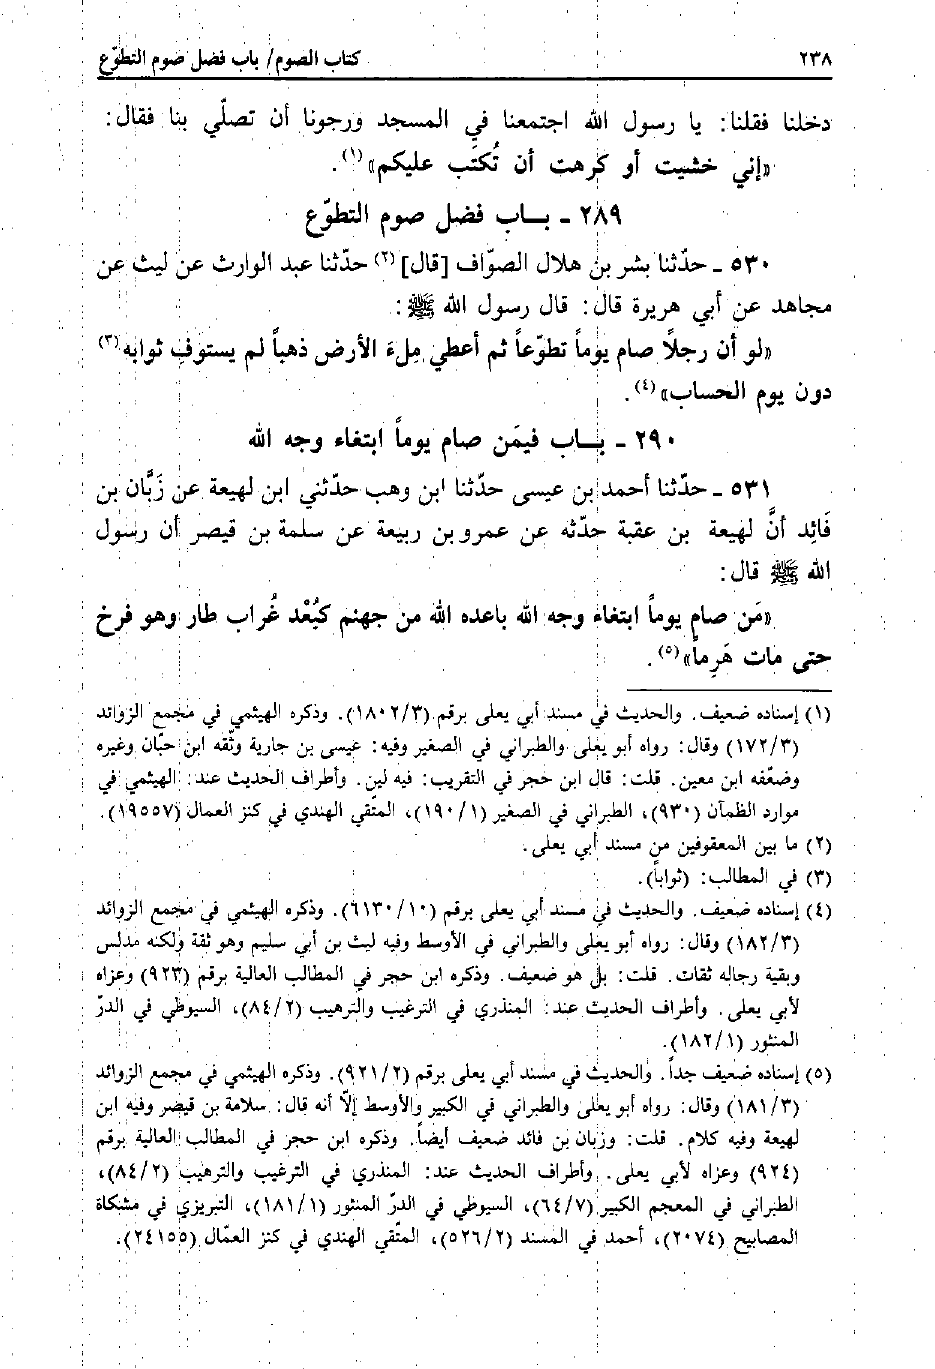 ٢٣٨ كتاب الصوم/ باب فضل صوم التطوّع
دخلنا فقلنا: يا رسول الله اجتمعنا في المسجد ورجونا أن تصلّي بنا فقال:
«إني خشيت أو كرهت أن تُكتَب عليكم»(١).
٢٨٩ ـ بـاب فضل صوم التطوّع
٥٣٠ ـ حدّثنا بشر بن هلال الصوّاف [قال](٢) حدّثنا عبد الوارث عن ليث عن
مجاهد عن أبي هريرة قال: قال رسول الله ﷺ:
«لو أن رجلاً صام يوماً تطوّعاً ثم أعطي مِلءَ الأرض ذهباً لم يستوفِ ثوابه(٣)
دون يوم الحساب»(٤).
٢٩٠ ـ بـاب فيمَن صام يوماً ابتغاء وجه الله
٥٣١ ـ حدّثنا أحمد بن عيسى حدّثنا ابن وهب حدّثني ابن لهيعة عن زَبَّان بن
فَائِد أنَّ لهيعة بن عقبة حدّثه عن عمرو بن ربيعة عن سلمة بن قيصر أن رسول
الله ﷺ قال:
«مَن صام يوماً ابتغاء وجه الله باعده الله من جهنم كبُعْد غُراب طار وهو فرخ
حتى مات هَرِماً»(٥).
(١) إسناده ضعيف. والحديث في مسند أبي يعلى برقم (١٨٠٢/٣). وذكره الهيثمي في مجمع الزوائد
(١٧٢/٣) وقال: رواه أبو يعلى والطبراني في الصغير وفيه: عيسى بن جارية وثّقه ابن حبّان وغيره
وضعّفه ابن معين. قلت: قال ابن حجر في التقريب: فيه لين. وأطراف الحديث عند: الهيثمي في
موارد الظمآن (٩٣٠)، الطبراني في الصغير (١٩٠/١)، المتّقي الهندي في كنز العمال (١٩٥٥٧).
(٢) ما بين المعقوفين من مسند أبي يعلى.
(٣) في المطالب: (ثواباً).
(٤) إسناده ضعيف. والحديث في مسند أبي يعلى برقم (٦١٣٠/١٠). وذكره الهيثمي في مجمع الزوائد
(١٨٢/٣) وقال: رواه أبو يعلى والطبراني في الأوسط وفيه ليث بن أبي سليم وهو ثقة ولكنه مدلس
وبقية رجاله ثقات. قلت: بل هو ضعيف. وذكره ابن حجر في المطالب العالية برقم (٩٢٣) وعزاه
لأبي يعلى. وأطراف الحديث عند: المنذري في الترغيب والترهيب (٨٤/٢)، السيوطي في الدرّ
المنثور (١٨٢/١).
(٥) إسناده ضعيف جداً. والحديث في مسند أبي يعلى برقم (٩٢١/٢). وذكره الهيثمي في مجمع الزوائد
(١٨١/٣) وقال: رواه أبو يعلى والطبراني في الكبير والأوسط إلّا أنه قال: سلامة بن قيصر وفيه ابن
لهيعة وفيه كلام. قلت: وزبان بن فائد ضعيف أيضاً. وذكره ابن حجر في المطالب العالية برقم
(٩٢٤) وعزاه لأبي يعلى. وأطراف الحديث عند: المنذري في الترغيب والترهيب (٨٤/٢)،
الطبراني في المعجم الكبير (٦٤/٧)، السيوطي في الدرّ المنثور (١٨١/١)، التبريزي في مشكاة
المصابيح (٢٠٧٤)، أحمد في المسند (٥٢٦/٢)، المتّقي الهندي في كنز العمّال (٢٤١٥٥).